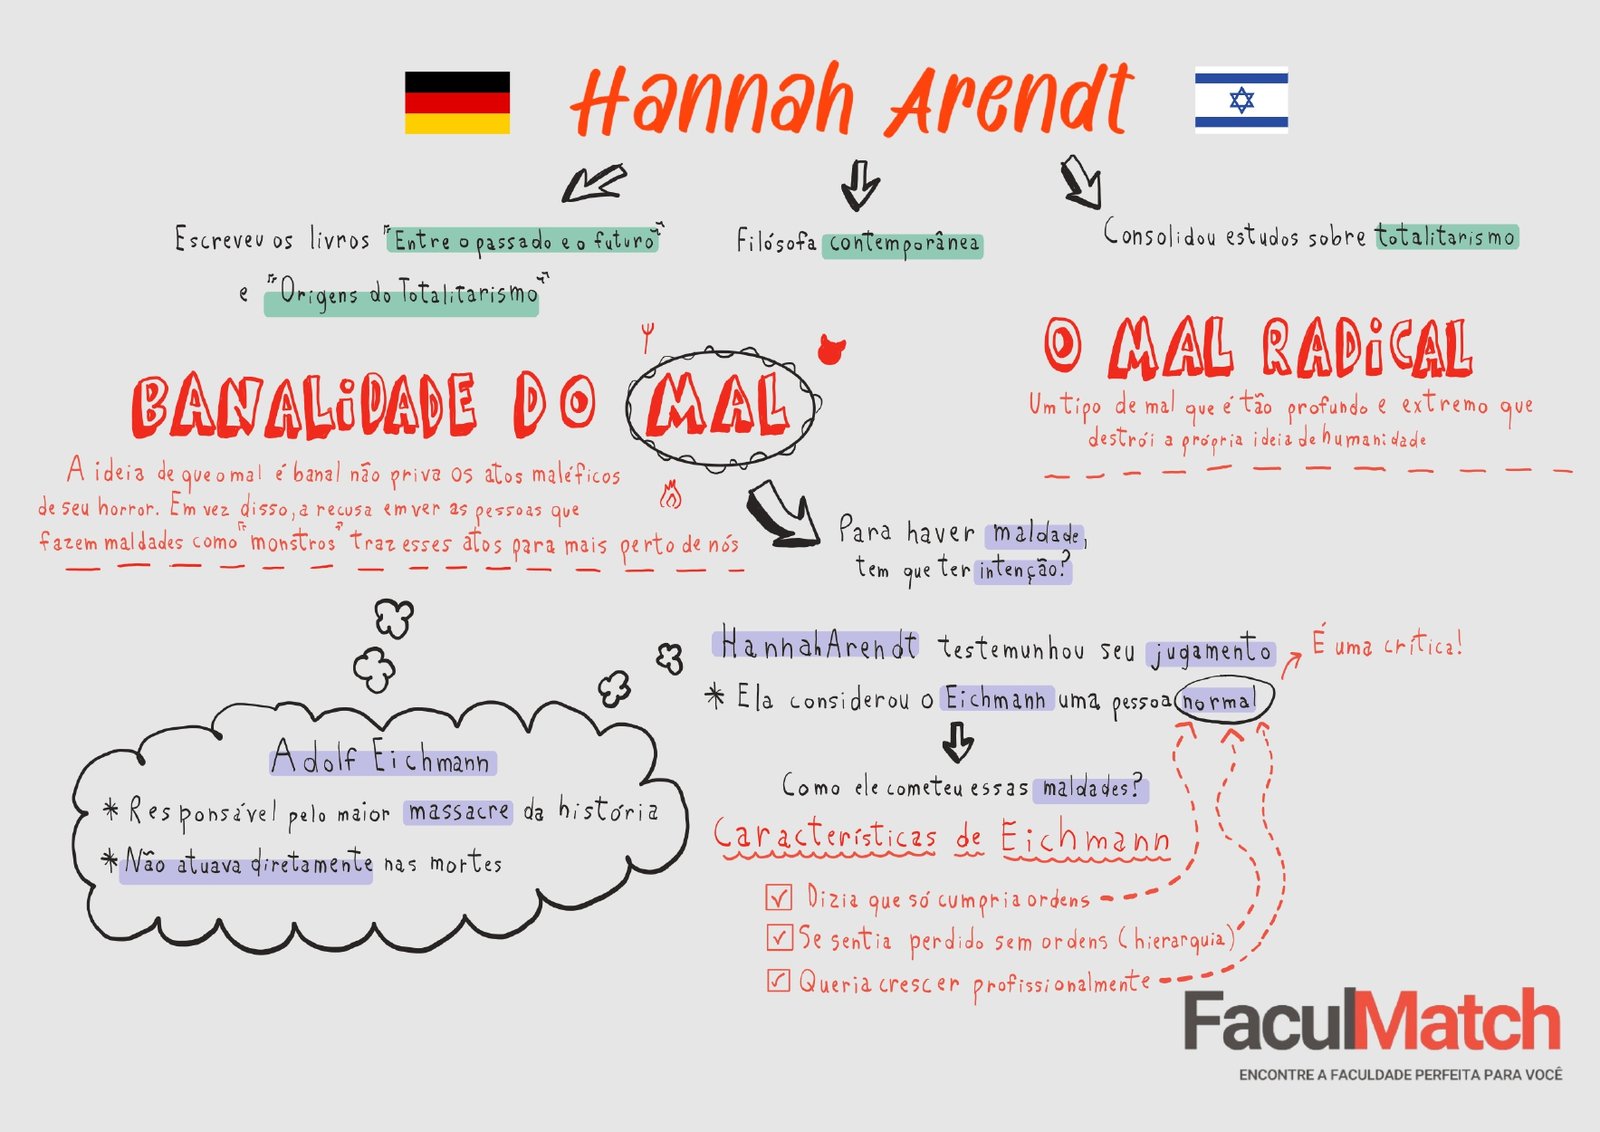 Hannah Arendt
Escreveu os livros "Entre o passado e o futuro"
e "Origens do Totalitarismo"
Filósofa contemporânea
Consolidou estudos sobre totalitarismo
BANALIDADE DO MAL
A ideia de que o mal é banal não priva os atos maléficos
de seu horror. Em vez disso, a recusa em ver as pessoas que
fazem maldades como "monstros" traz esses atos para mais perto de nós
O MAL RADICAL
Um tipo de mal que é tão profundo e extremo que
destrói a própria ideia de humanidade
Para haver maldade,
tem que ter intenção?
Hannah Arendt testemunhou seu jugamento
* Ela considerou o Eichmann uma pessoa normal
É uma crítica!
Como ele cometeu essas maldades?
Adolf Eichmann
* Responsável pelo maior massacre da história
* Não atuava diretamente nas mortes
Características de Eichmann
Dizia que só cumpria ordens
Se sentia perdido sem ordens (hierarquia)
Queria crescer profissionalmente
FaculMatch
ENCONTRE A FACULDADE PERFEITA PARA VOCÊ